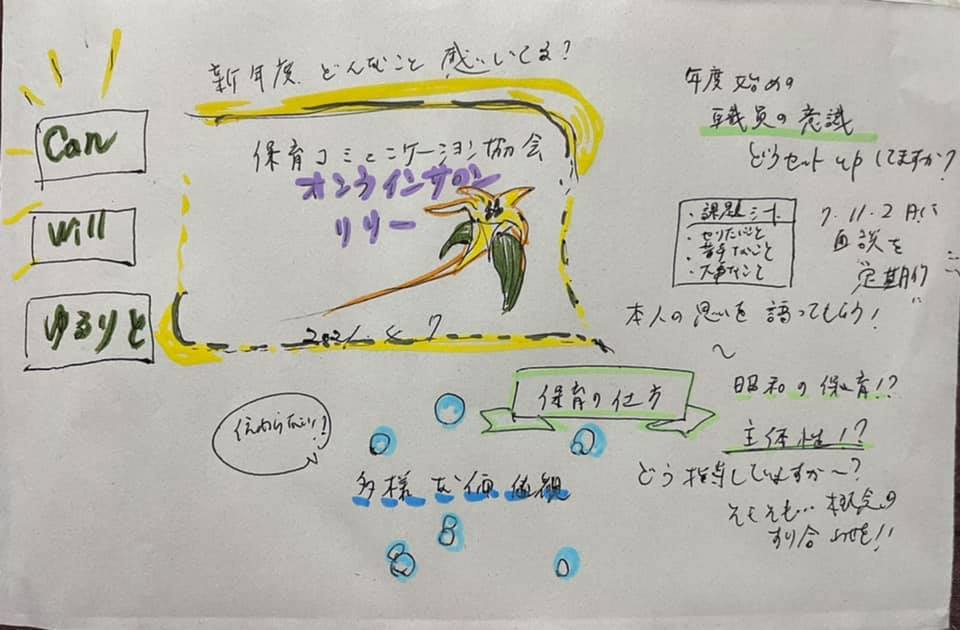 新年度 どんなこと 感じてる?
Can
Will
ゆるりと
保育コミュニケーション協会
オンラインサロン
リリー
2021. 4. 7
年度始めの
職員の意識
どうセットupしてますか?
・課題シート
・やりたいこと
・苦手なこと
・大事なこと
7.11.2月に
面談を
定期的
本人の思いを語ってもらう!
〜
保育の仕方
伝わらない!?
多様な価値観
昭和の保育!?
主体性!?
どう指導していますか〜?
そもそも…概念の
すり合わせを!!